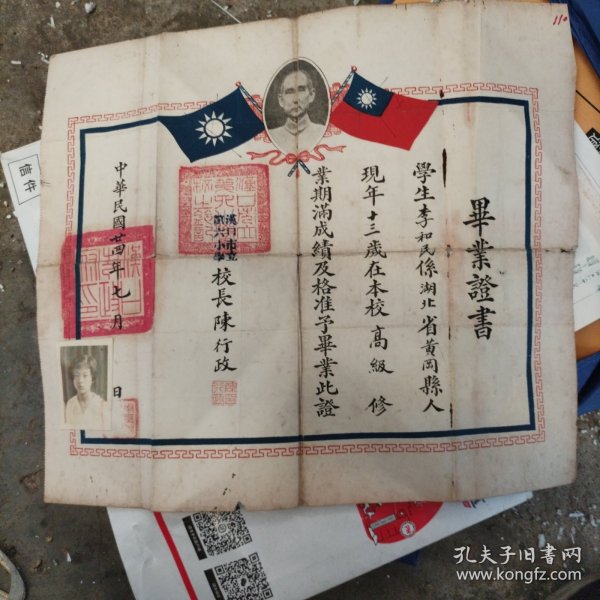 畢業證書
學生李和民係湖北省黃岡縣人
現年十三歲在本校高級修
業期滿成績及格准予畢業此證
漢口市立
第六小學
校長陳行政
中華民國廿四年七月 日
110
信件
孔夫子旧书网
www.kongfz.com